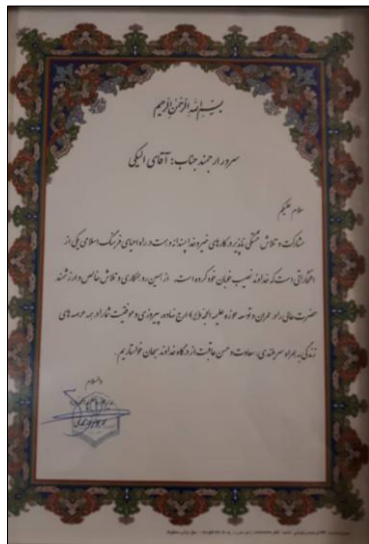 بسم الله الرحمن الرحیم
سرور ارجمند جناب: آقای الیکی
سلام علیکم
مشارکت و تلاش خستگی ناپذیر در کارهای خیر و خداپسندانه و همت در راه احیای فرهنگ اسلامی یکی از
افتخاراتی است که خداوند نصیب خوبان خود کرده است. از همین رو همکاری و تلاش خالص و ارزشمند
حضرت عالی را در عمران و توسعه حوزه علمیه ارج نهاده، پیروزی و موفقیت شما را در همه عرصه های
زندگی به همراه سربلندی، سعادت و حسن عاقبت از درگاه خداوند سبحان خواستاریم.
والسلام